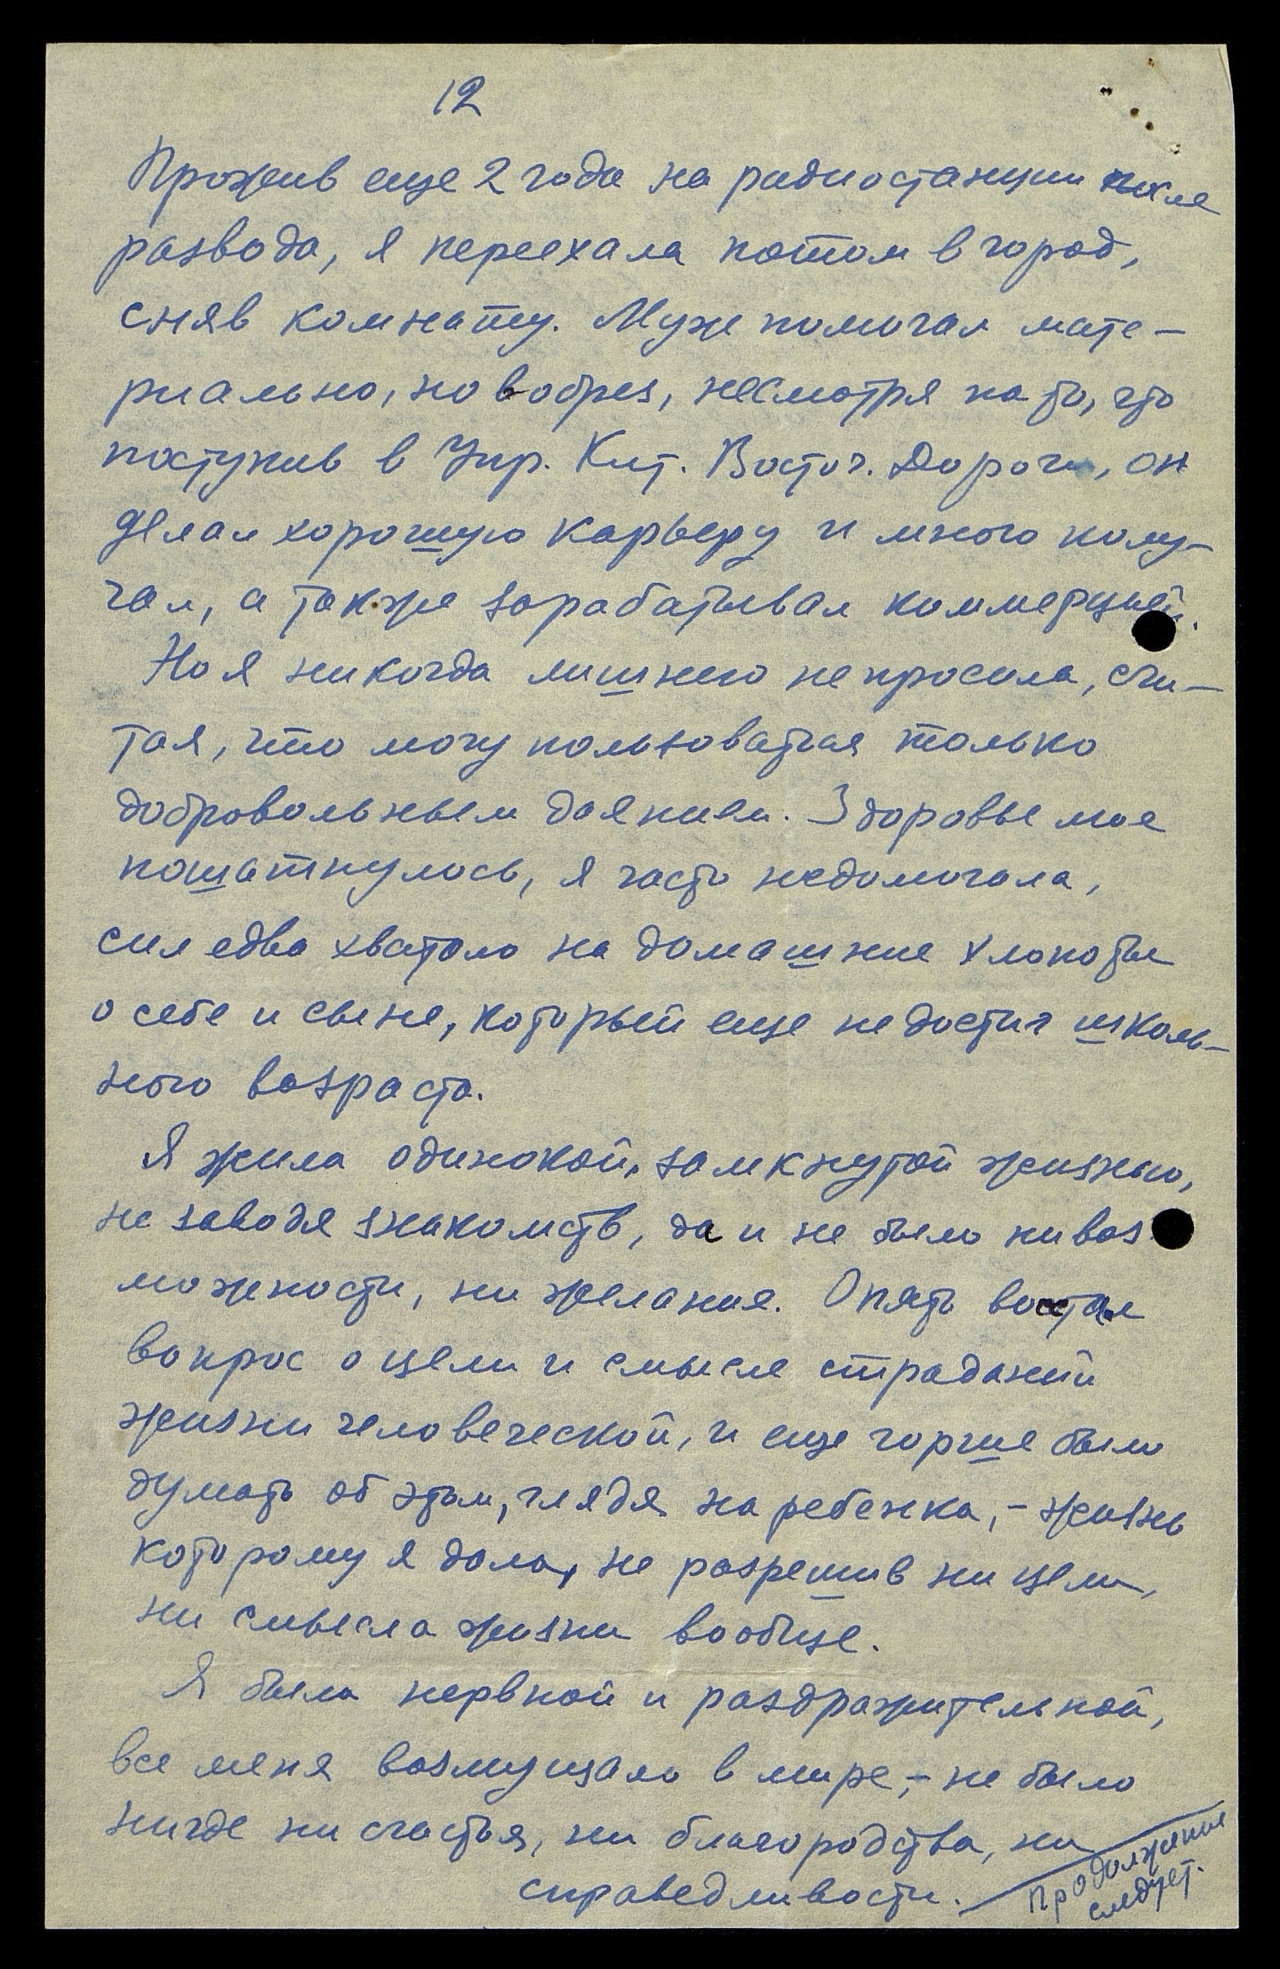 12
Прожив еще 2 года на радиостанции после
развода, я переехала потом в город,
сняв комнату. Муж помогал мате-
риально, но в обрез, несмотря на то, что
поступив в Упр. Кит. Восточ. Дороги, он
делал хорошую карьеру и много полу-
чал, а также зарабатывал коммерцией.
Но я никогда лишнего не просила, счи-
тая, что могу пользоваться только
добровольным даянием. Здоровье мое
пошатнулось, я часто недомогала,
сил едва хватало на домашние хлопоты
о себе и сыне, который еще не достиг школь-
ного возраста.
Я жила одинокой, замкнутой жизнью,
не заводя знакомств, да и не было ни воз-
можности, ни желания. Опять восстал
вопрос о цели и смысле страданий
жизни человеческой, и еще горше было
думать об этом, глядя на ребенка, - жизнь
которому я дала, не разрешив ни цели,
ни смысла жизни вообще.
Я была нервной и раздражительной,
все меня возмущало в мире, - не было
нигде ни счастья, ни благородства, ни
справедливости. -
Продолжение
следует.